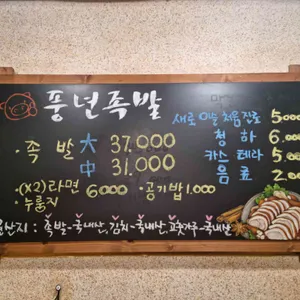 풍년족발
·족발 大 37.000
中 31.000
·(X2)라면
·누룽지 6000 ·공기밥 1.000
새로 이슬 처음 진로 5000
청하 6.
카스 테라 5.
음료 2.00
원산지 : 족발-국내산, 김치-국내산, 고춧가루-국내산